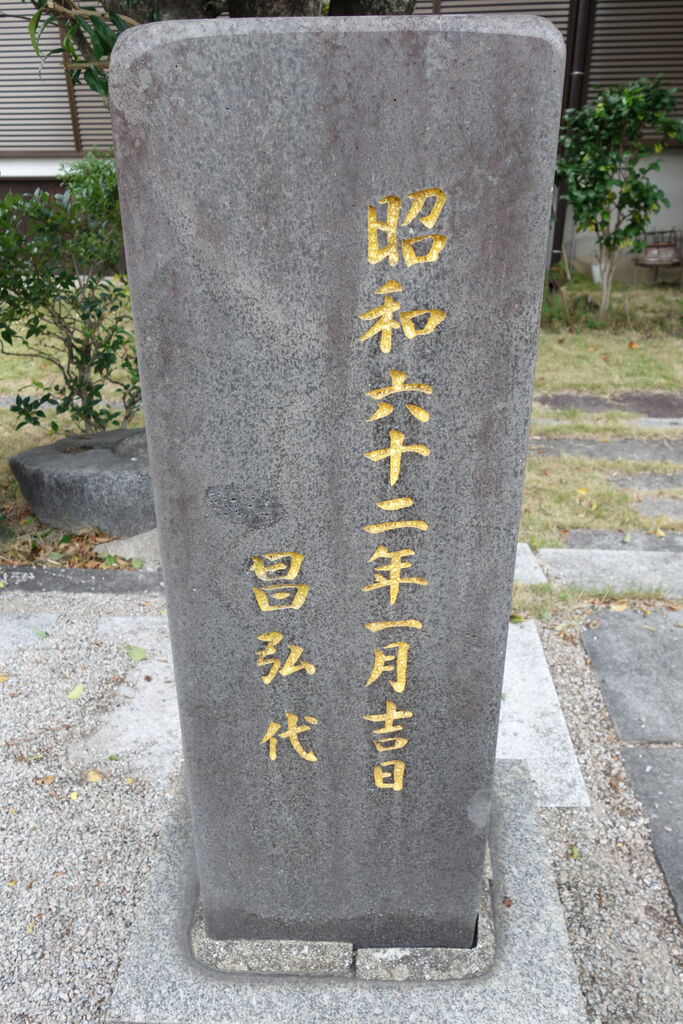 昭和六十二年一月吉日
昌弘代